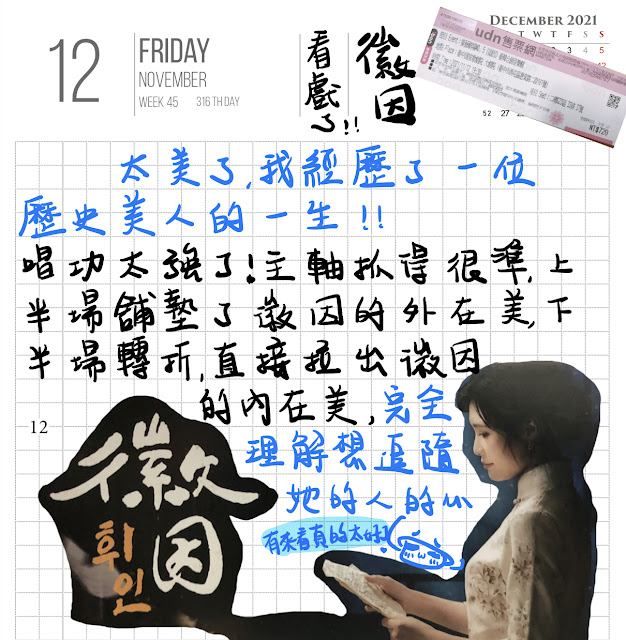 12
FRIDAY
NOVEMBER
WEEK 45 316 TH DAY
看戲了!!
徽因
DECEMBER 2021
udn售票網
NT$720
52 27
太美了,我經歷了一位
歷史美人的一生!!
唱功太強了!主軸抓得很準,上
半場舖墊了徽因的外在美,下
半場轉折,直接拉出徽因
的內在美,完全
理解想追隨
她的人的心
有來看真的太好!
12
徽因
휘인